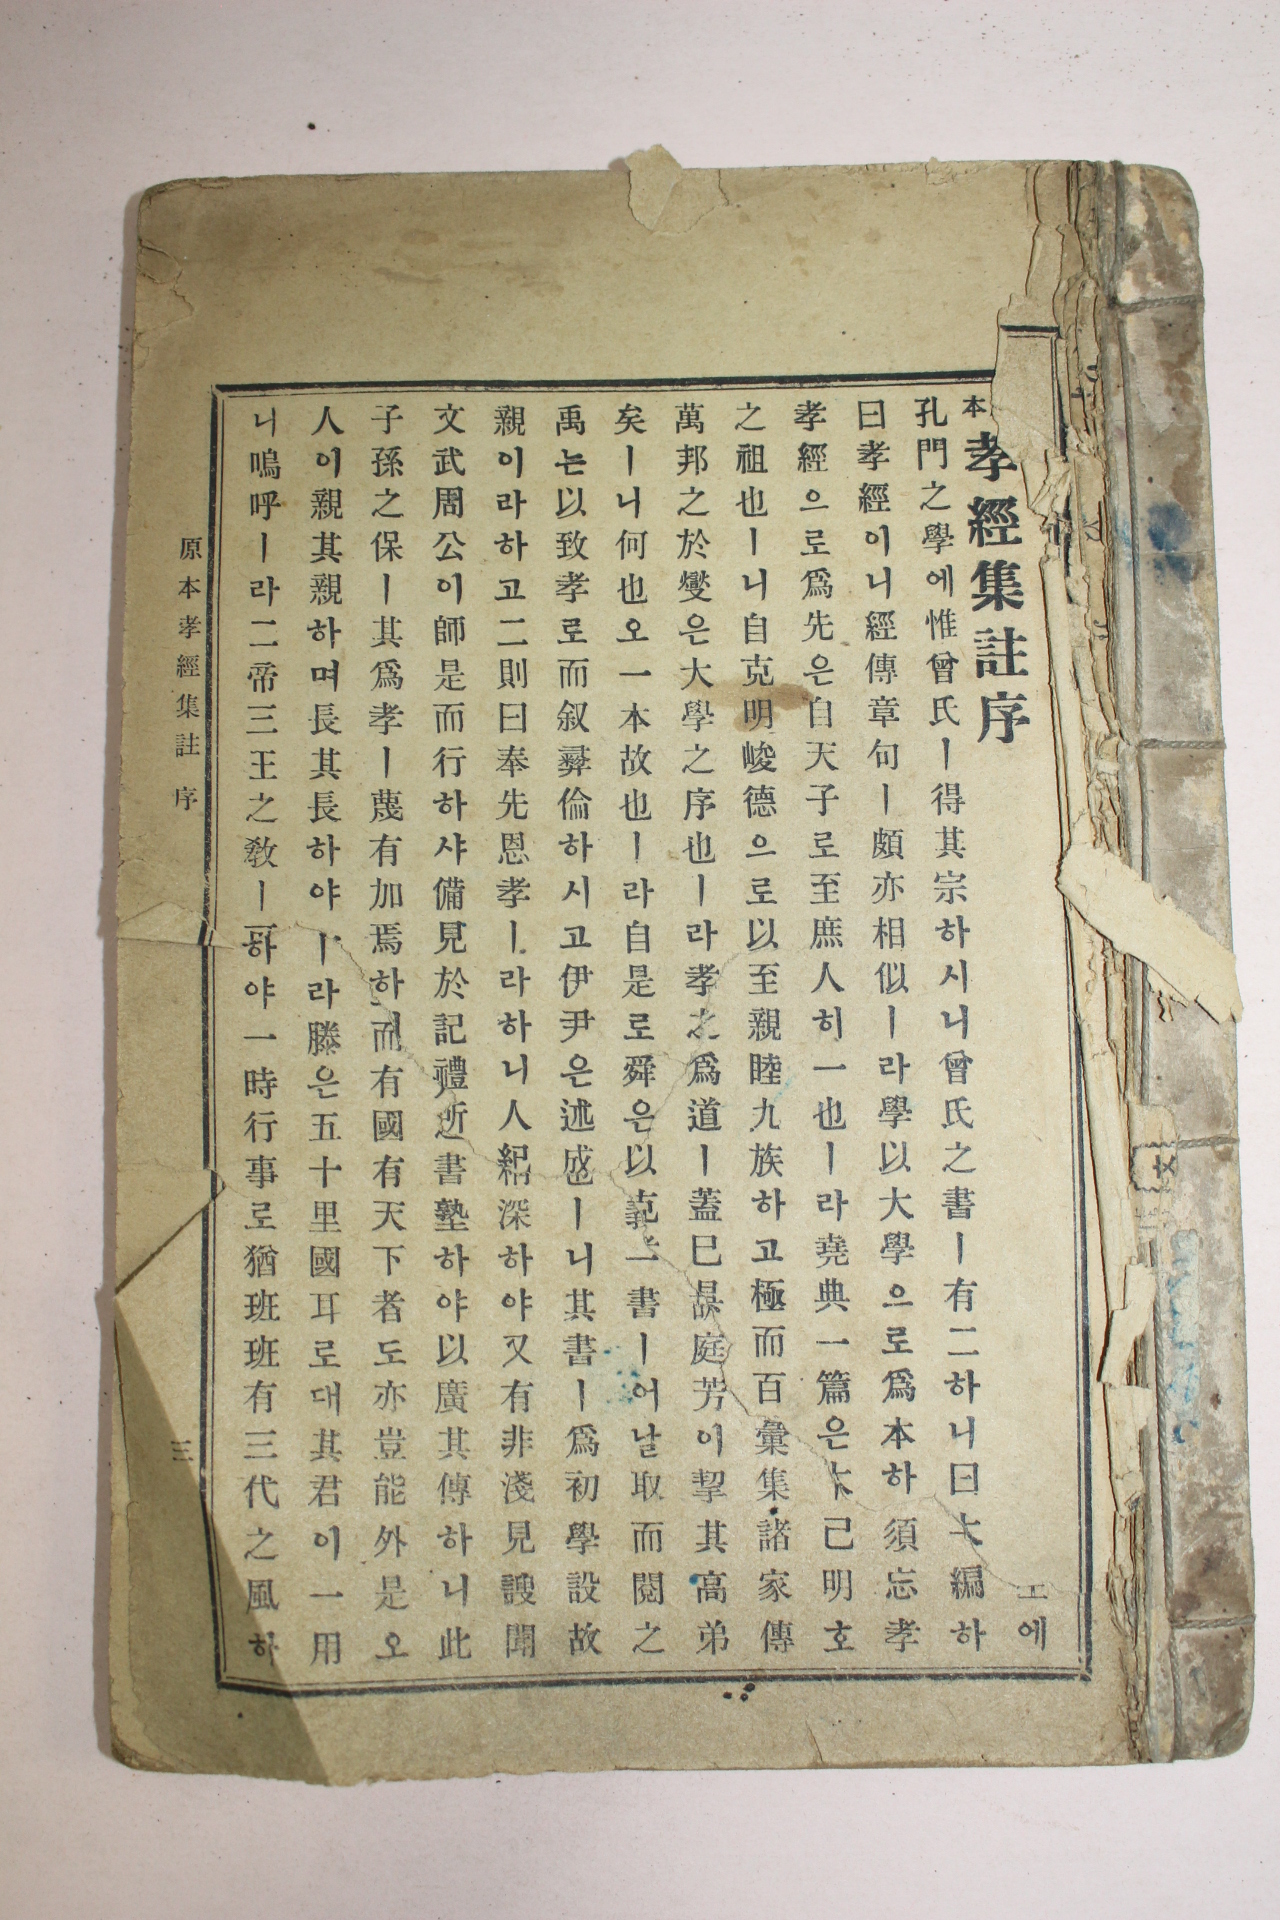 本 孝經集註序
孔門之學에惟曾氏ㅣ得其宗하시니曾氏之書ㅣ有二하니曰大編하
曰孝經이니經傳章句ㅣ頗亦相似ㅣ라學以大學으로爲本하須忘孝
孝經으로爲先은自天子로至庶人히一也ㅣ라堯典一篇은 己明호
之祖也ㅣ니自克明峻德으로以至親睦九族하고極而百彙集諸家傳
萬邦之於變은大學之序也ㅣ라孝之爲道ㅣ蓋已 庭芳이挈其高弟
矣ㅣ니何也오一本故也ㅣ라自是로舜은以克 一書ㅣ어날取而閱之
禹는以致孝로而敍彛倫하시고伊尹은述 ㅣ니其書ㅣ爲初學設故
親이라하고二則曰奉先恩孝ㅣ라하니人紀 深하야又有非淺見謏聞
文武周公이師是而行하샤備見於記禮 書塾하야以廣其傳하니此
子孫之保ㅣ其爲孝ㅣ蔑有加焉하 而有國有天下者도亦豈能外是오
人이親其親하며長其長하야 ㅣ라滕은五十里國耳로대其君이一用
니嗚呼ㅣ라二帝三王之敎ㅣ 하야一時行事로猶班班有三代之風하
原本孝經集註 序
三
에